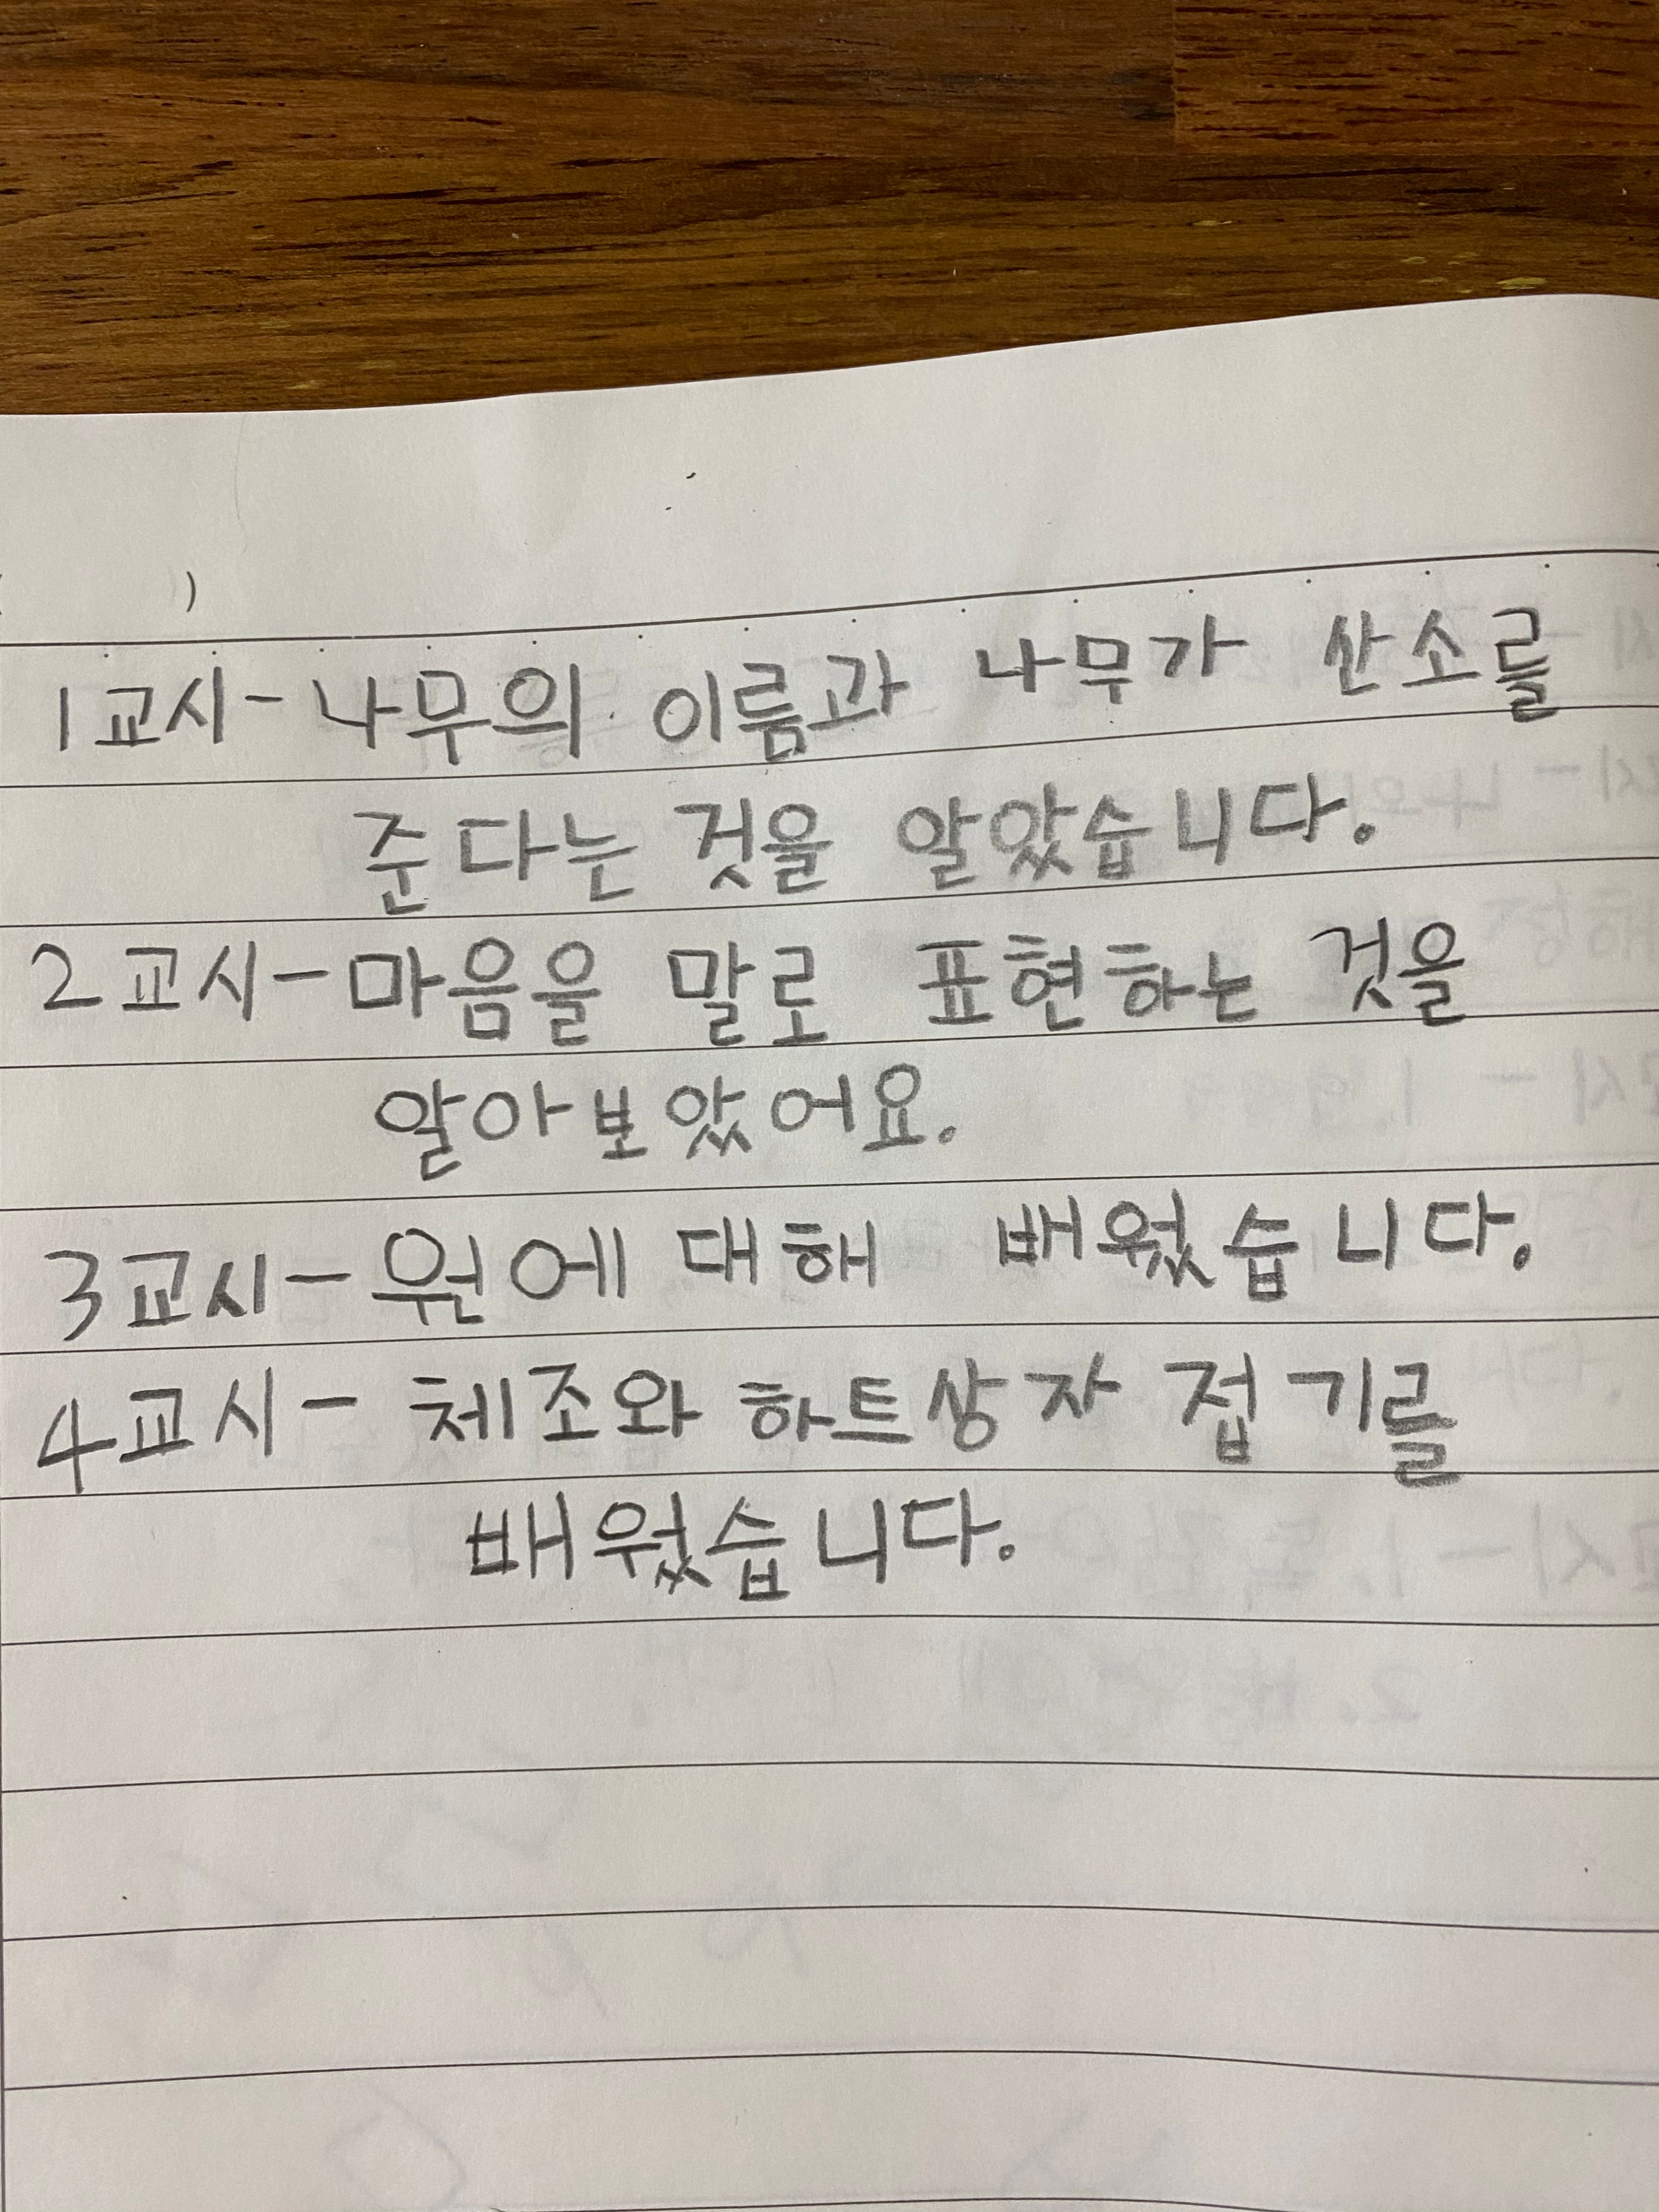 ( )
1교시-나무의 이름과 나무가 산소를
준다는 것을 알았습니다.
2교시-마음을 말로 표현하는 것을
알아보았어요.
3교시-원에 대해 배웠습니다.
4교시- 체조와 하트상자 접기를
배웠습니다.